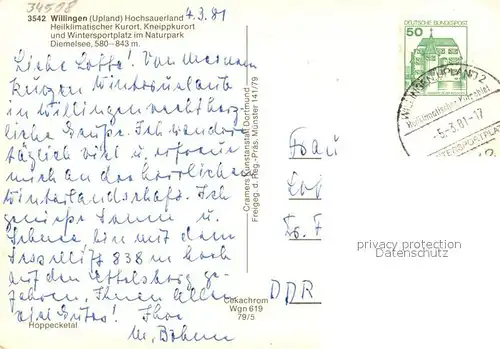 34508
3542 Willingen (Upland) Hochsauerland
Heilklimatischer Kurort, Kneippkurort
und Wintersportplatz im Naturpark
Diemelsee, 580-843 m.
4.3.81
Liebe Lotte! Von meinem
kurzen Winterurlaub
in Willingen recht herz-
liche Grüße. Ich wandere
täglich viel u. erfreue
mich an der herrlichen
Winterlandschaft. Ich
genieße Sonne u.
Schnee, bin mit dem
Sessellift 838 m hoch
auf den Ettelsberg ge-
fahren. Ihnen allen
alles Gute! Ihre
M. Böhm
Hoppecketal
Cramers Kunstanstalt Dortmund
Freigeg. d. Reg.-Präs. Münster 141/79
Cekachrom
Wgn 619
79/5
DEUTSCHE BUNDESPOST
50
WILLINGEN (UPLAND) 2
Heilklimatischer
-5.3.81-17
WINTERSPORTPLATZ
Frau
DDR
privacy protection
Datenschutz